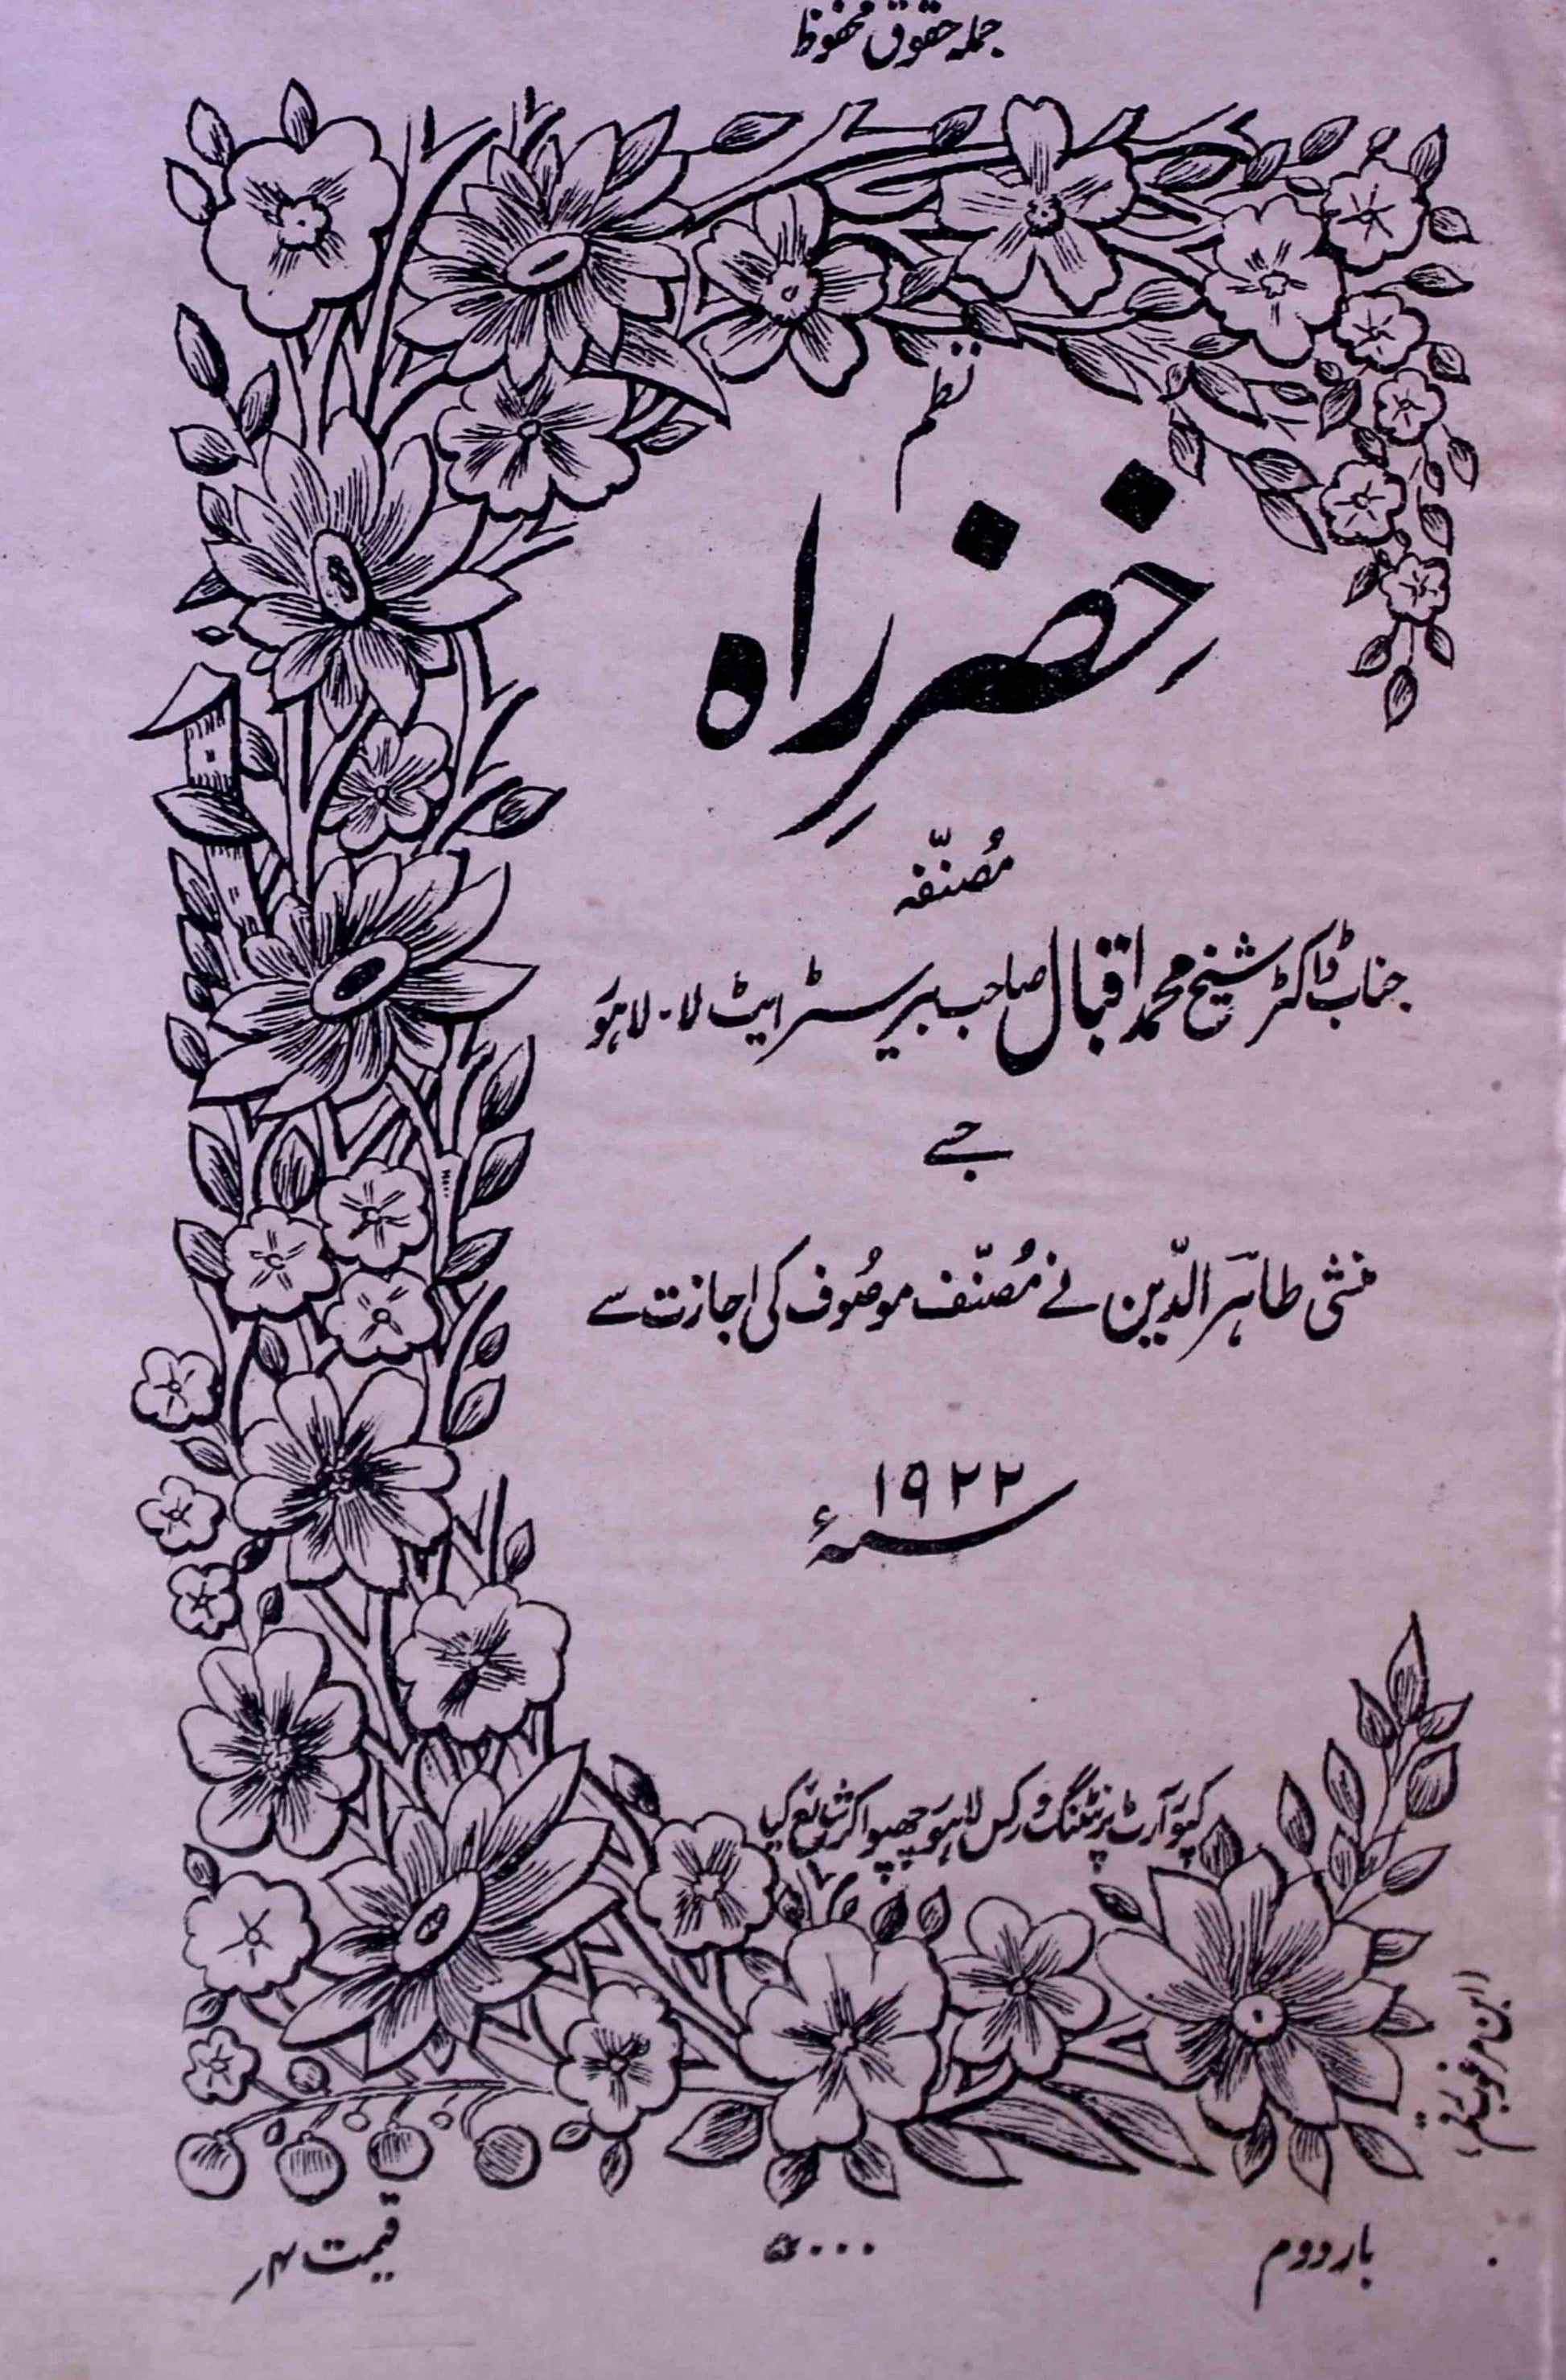 جملہ حقوق محفوظ
نظم
خِضرِراہ
مُصنّفہ
جناب ڈاکٹر شیخ محمد اقبال صاحب بیرسٹر ایٹ لا۔ لاہور
جسے
منشی طاہر الدّین نے مُصنّف موصُوف کی اجازت سے
سنہ ۱۹۲۲ء
کپور آرٹ پرنٹنگ ورکس لاہور چھپوا کر شائع کیا
بار دوم
۵۰۰۰
قیمت ۴؍